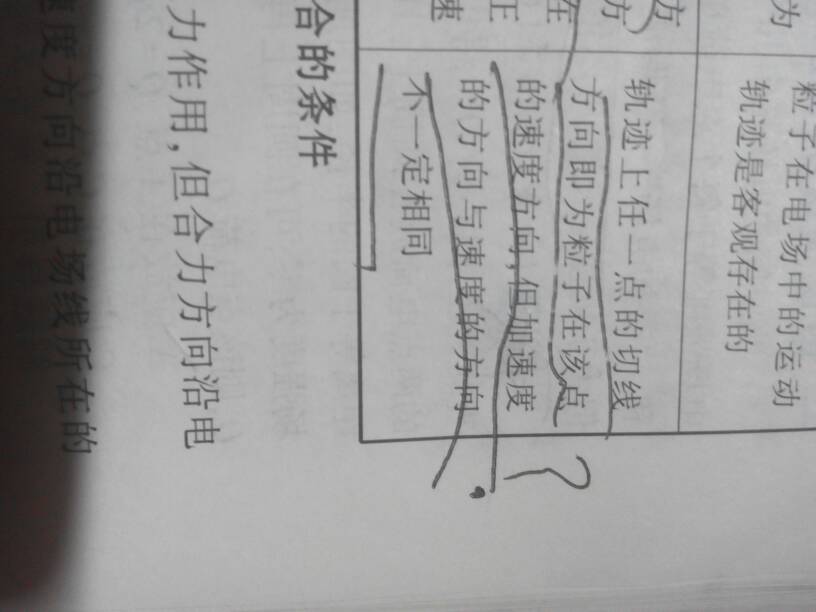 为
粒子在电场中的运动
轨迹是客观存在的
方
方
在
正
速
轨迹上任一点的切线
方向即为粒子在该点
的速度方向,但加速度
的方向与速度的方向
不一定相同
?
合的条件
力作用,但合力方向沿电
速度方向沿电场线所在的